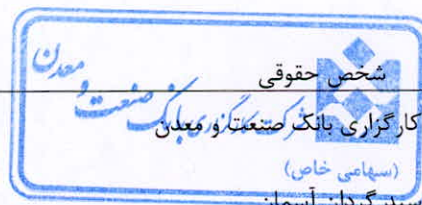 شخص حقوقی
شرکت کارگزاری بانک صنعت و معدن
کارگزاری بانک صنعت و معدن
(سهامی خاص)
سبدگردان آسمان